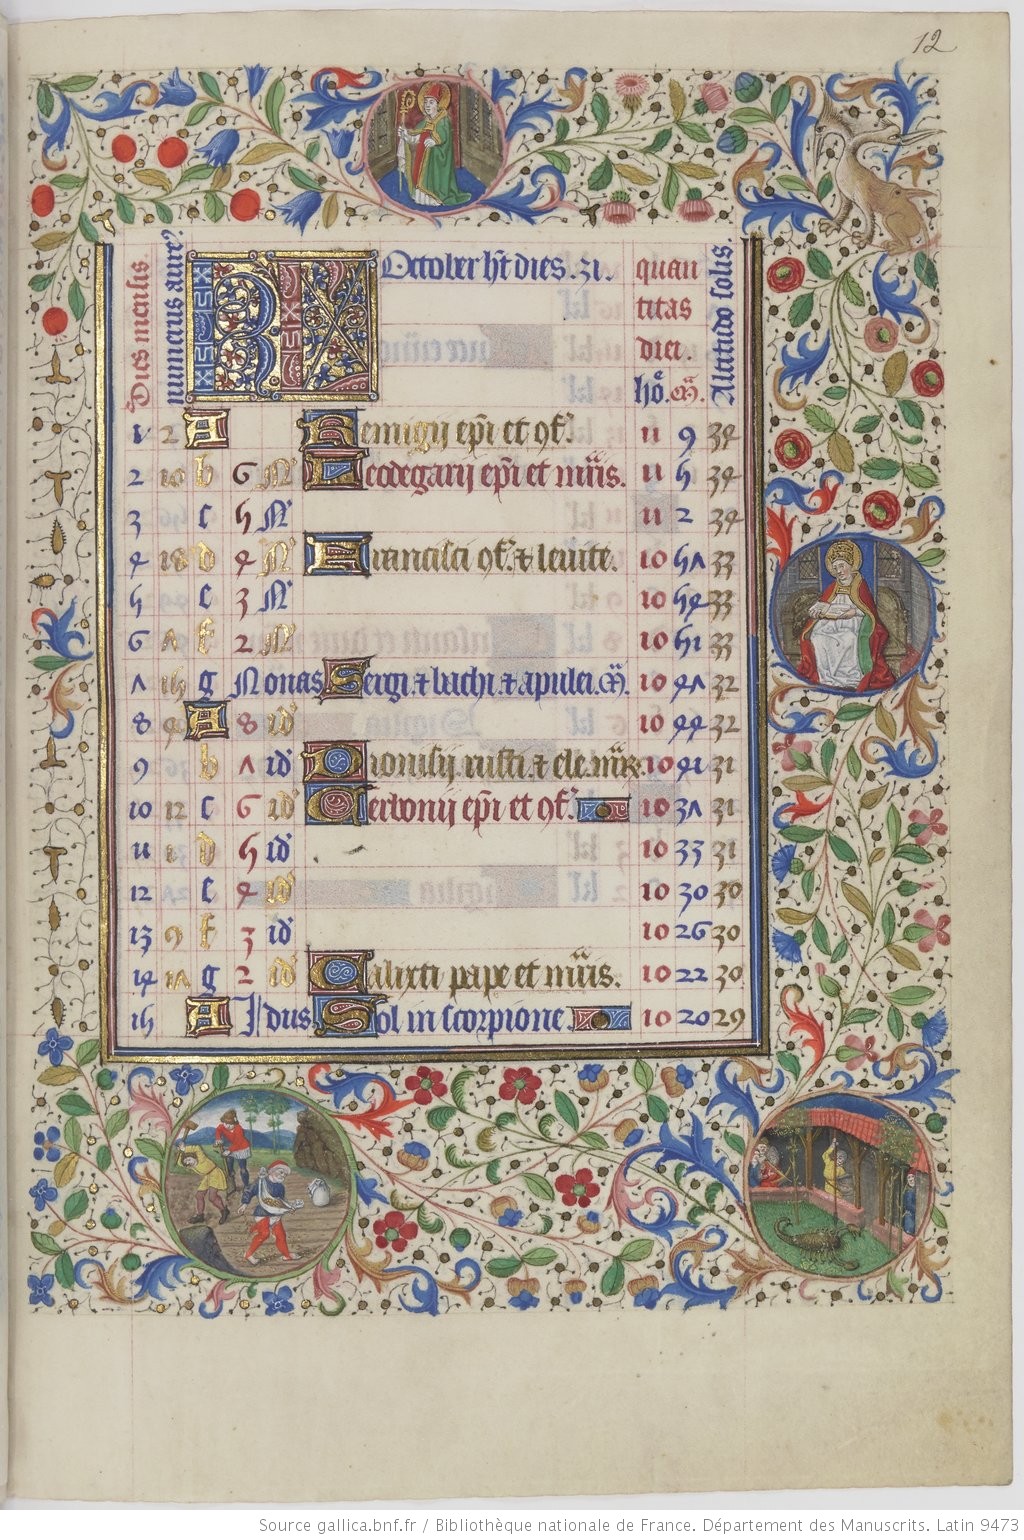 12
Dies mensis
numerus aure9
KL October h't dies .31.
quan
titas
diei.
ho. m.
Altitudo solis.
1 2 A Remigij ep̄i et 9f.
11 9 34
2 10 b 6 N' Leodegarij ep̄i et mr̄is. 11 5 34
3 c 5 N' 11 2 34
4 18 d 4 N' Francisci 9f. & leuite. 10 57 33
5 e 3 N' 10 54 33
6 7 f 2 N' 10 51 33
7 15 g Nonas Sergi & bachi & apulei. m̄. 10 47 32
8 4 A 8 id' 10 44 32
9 b 7 id' Dionisij rusti. & ele. mr̄. 10 41 31
10 12 c 6 id' Cerbonij ep̄i et 9f. 10 37 31
11 1 d 5 id' 10 33 31
12 e 4 id' 10 30 30
13 9 f 3 id' 10 26 30
14 17 g 2 id' Calixti pape et mr̄is. 10 22 30
15 A Idus Sol in scorpione. 10 20 29
Source gallica.bnf.fr / Bibliothèque nationale de France. Département des Manuscrits. Latin 9473